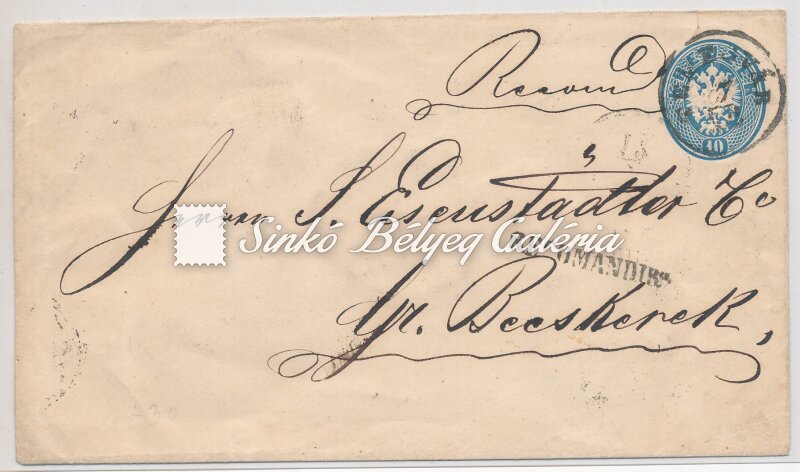 Recom
10
Herrn S. Eisenstädter & Co
Sinkó Bélyeg Galéria
RECOMANDIRT
Gr. Becskerek,